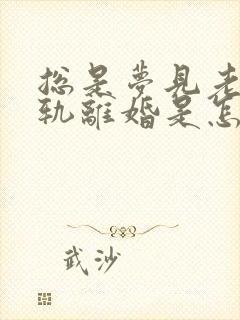 总是夢見老
軌離婚是怎
武沙